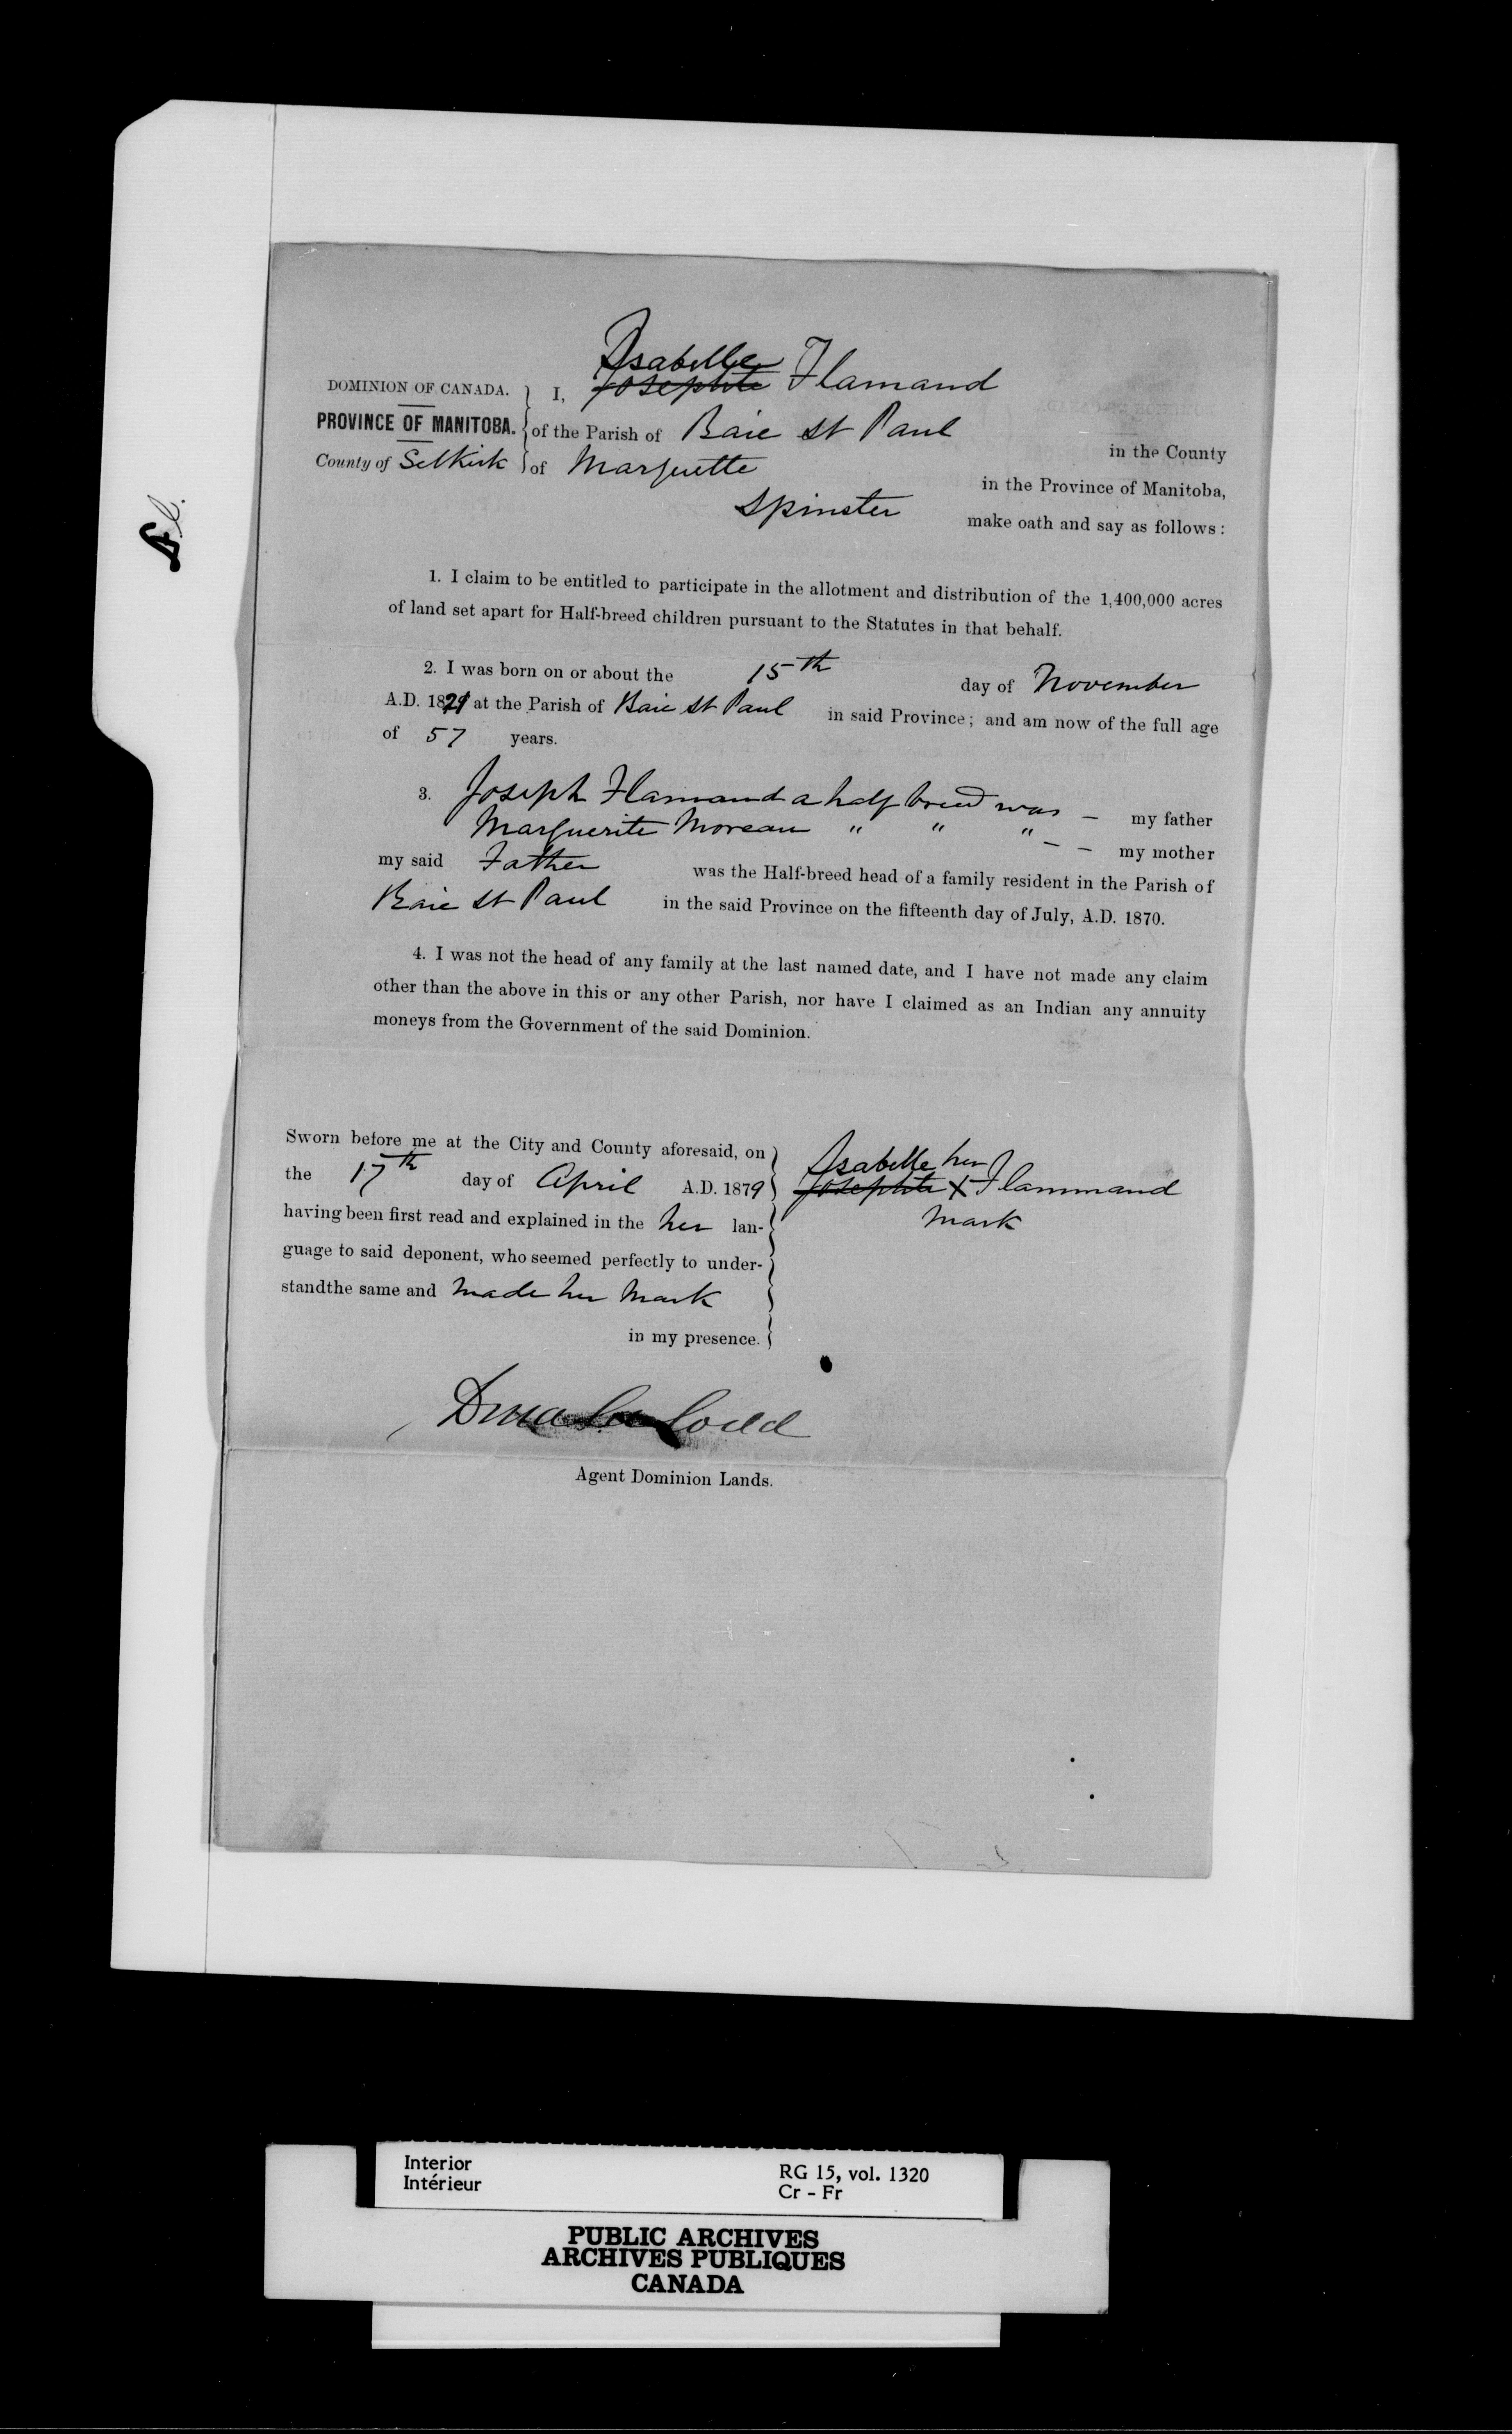 Isabelle
DOMINION OF CANADA. I, Josephte Flamand
PROVINCE OF MANITOBA. of the Parish of Baie St Paul
in the County
County of Selkirk of Marquette
in the Province of Manitoba,
Spinster make oath and say as follows:
1. I claim to be entitled to participate in the allotment and distribution of the 1,400,000 acres
of land set apart for Half-breed children pursuant to the Statutes in that behalf.
2. I was born on or about the 15th day of November
A.D. 1821 at the Parish of Baie St Paul in said Province; and am now of the full age
of 57 years.
3. Joseph Flamand a half breed was - my father
Marguerite Moreau " " " - - my mother
my said Father was the Half-breed head of a family resident in the Parish of
Baie St Paul in the said Province on the fifteenth day of July, A.D. 1870.
4. I was not the head of any family at the last named date, and I have not made any claim
other than the above in this or any other Parish, nor have I claimed as an Indian any annuity
moneys from the Government of the said Dominion.
Sworn before me at the City and County aforesaid, on
the 17th day of April A.D. 1879
having been first read and explained in the her lan-
guage to said deponent, who seemed perfectly to under-
standthe same and made her mark
in my presence.
Isabelle her
Josephte X Flammand
mark
Codd
Agent Dominion Lands.
Interior
Intérieur
RG 15, vol. 1320
Cr - Fr
PUBLIC ARCHIVES
ARCHIVES PUBLIQUES
CANADA